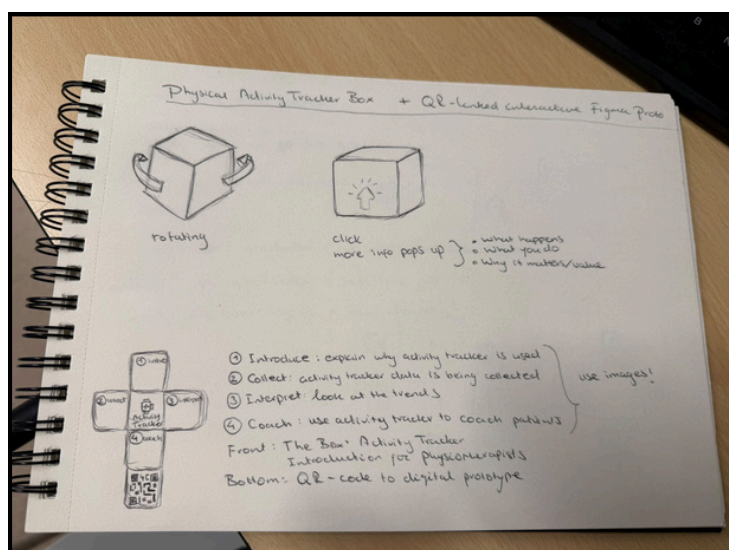 Physical Activity Tracker Box + QR-linked interactive Figma Proto
rotating
click
more info pops up
• what happens
• what you do
• why it matters/value
① intro
② collect
Activity
Tracker
③ interpret
④ coach
① Introduce: explain why activity tracker is used
② Collect: activity tracker data is being collected
③ Interpret: look at the trends
④ Coach: use activity tracker to coach patients
use images!
Front: The Box: Activity Tracker
Introduction for physiotherapists
Bottom: QR-code to digital prototype